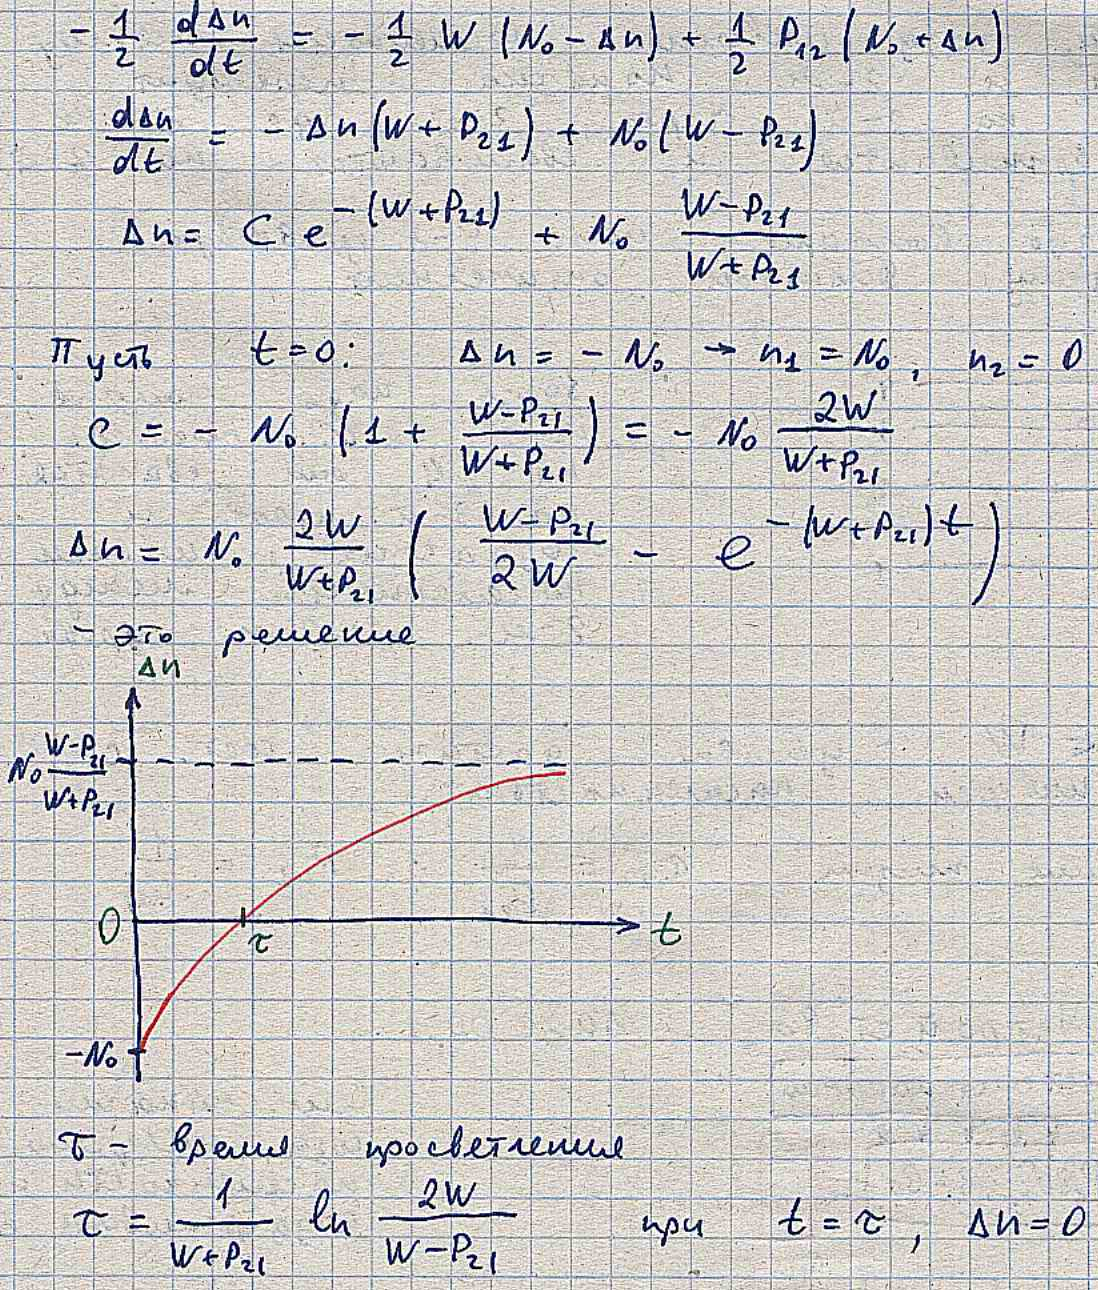 - 1/2 dΔn/dt = - 1/2 W (N₀ - Δn) + 1/2 P₁₂ (N₀ + Δn)
dΔn/dt = - Δn (W + P₂₁) + N₀ (W - P₂₁)
Δn = C · e^{-(W + P₂₁)} + N₀ (W - P₂₁)/(W + P₂₁)
Пусть t = 0: Δn = - N₀ → n₁ = N₀, n₂ = 0
C = - N₀ (1 + (W - P₂₁)/(W + P₂₁)) = - N₀ 2W/(W + P₂₁)
Δn = N₀ 2W/(W + P₂₁) ((W - P₂₁)/2W - e^{-(W + P₂₁)t})
- это решение
Δn
N₀ (W - P₂₁)/(W + P₂₁)
0 τ t
-N₀
τ - время просветления
τ = 1/(W + P₂₁) ln 2W/(W - P₂₁) при t = τ, Δn = 0